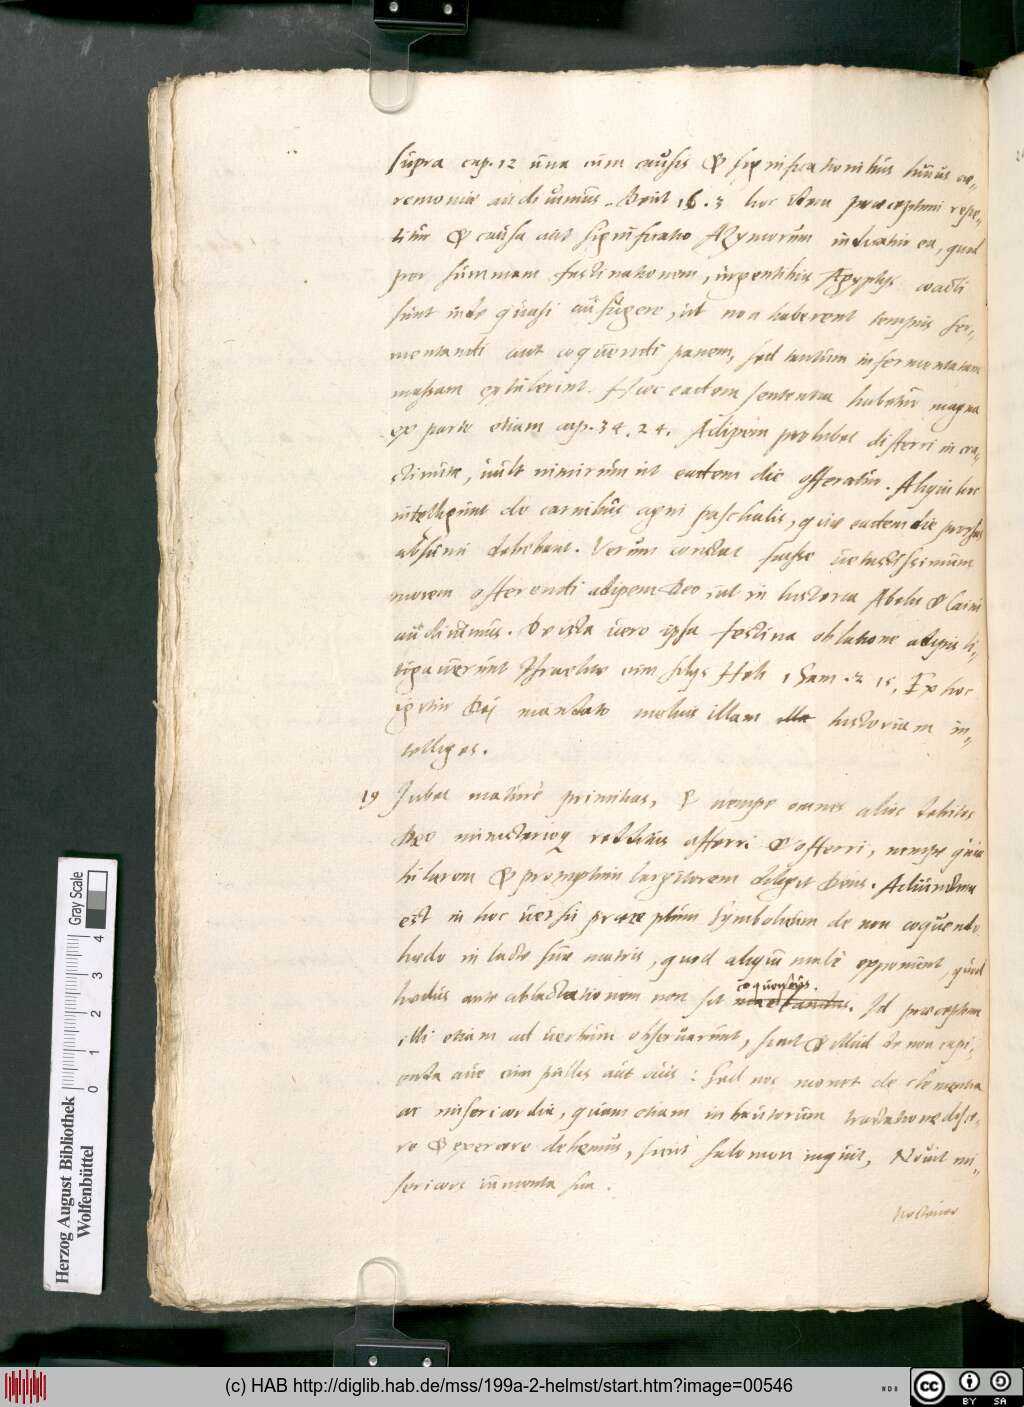 supra cap. 12 una cum causis & significationibus huius cae¬
remoniae audiuimus. Deut 16. 3 hoc idem praeceptum repe¬
titur & causa aut significatio Azymorum indicatur ea, quod
per summam festinationem, urgentibus Aegyptijs coacti
sunt inde quasi aufugere, ut non haberent tempus fer¬
mentandi aut coquendi panem, sed tantum infermentatam
massam extulerint. Haec eadem sententia habetur magna
ex parte etiam cap. 34. 24. Adipem prohibet differri in cra¬
stinum, uult nimirum ut eadem die offeratur. Aliqui hoc
intelligunt de carnibus agni paschalis, quae eadem die prorsus
absumi debebant. Verum constat fuisse uetustissimum
morem offerendi adipem Deo, ut in historia Abelis & Caini
audiuimus. De ista uero ipsa festina oblatione adipis li¬
tigauerunt Israelitae cum filijs Heli 1 Sam. 2 15. Ex hoc
igitur Dei mandato melius illam illa historiam in¬
telliges.
19 Iubet mature primitias, & nempe omnes alios debitos
Deo ministerioq redditus afferri & offerri, nempe quia
hilarem & promptum largitorem diligit Deus. Adiuncta
est in hoc uersu praeceptum Symbolicum de non coquendo
haedo in lacte suae matris, quod aliqui male exponunt, quod
haedus ante ablactationem non sit
coquendus.
Id praeceptum
illi etiam ad uerbum obseruarunt, sicut & illud de non capi¬
enda aue cum pullis aut ouis: sed nos monet de clementia
ac misericordia, quam etiam in brutorum tractatione disce¬
re & exercere debemus, sicut Salomon inquit, Nouit mi¬
sericors iumenta sua.
Herzog August Bibliothek
Wolfenbüttel
0 1 2 3 4
Gray Scale
(c) HAB http://diglib.hab.de/mss/199a-2-helmst/start.htm?image=00546
cc BY SA